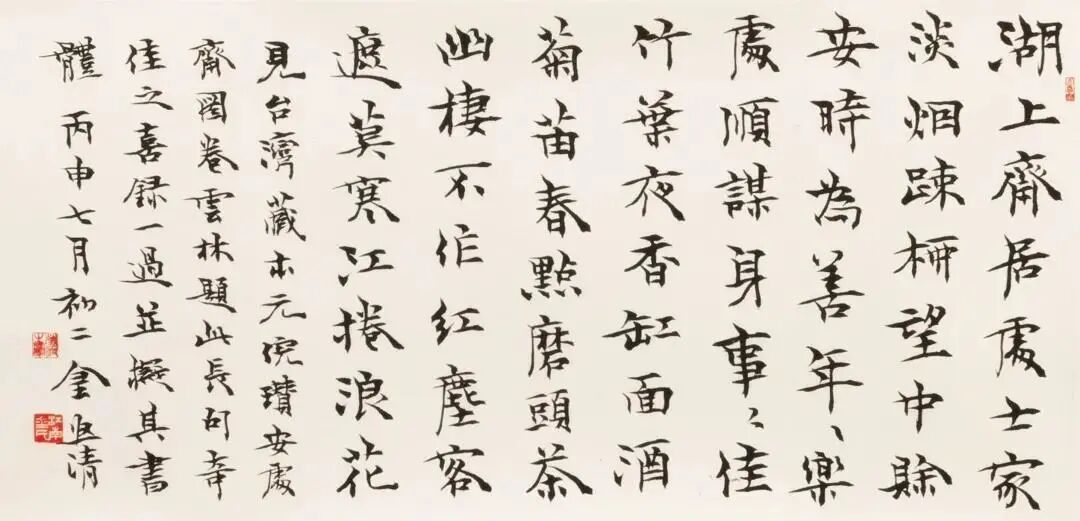 湖上齋居處士家
淡烟踈柳望中賖
安時為善年〻樂
處順謀身事〻佳
竹葉夜香缸面酒
菊苗春點磨頭茶
幽棲不作紅塵客
遮莫寒江捲浪花
見台灣藏本元倪瓚安處
齋圖卷雲林題此長句奇
佳之喜録一過並擬其書
體 丙申七月初二